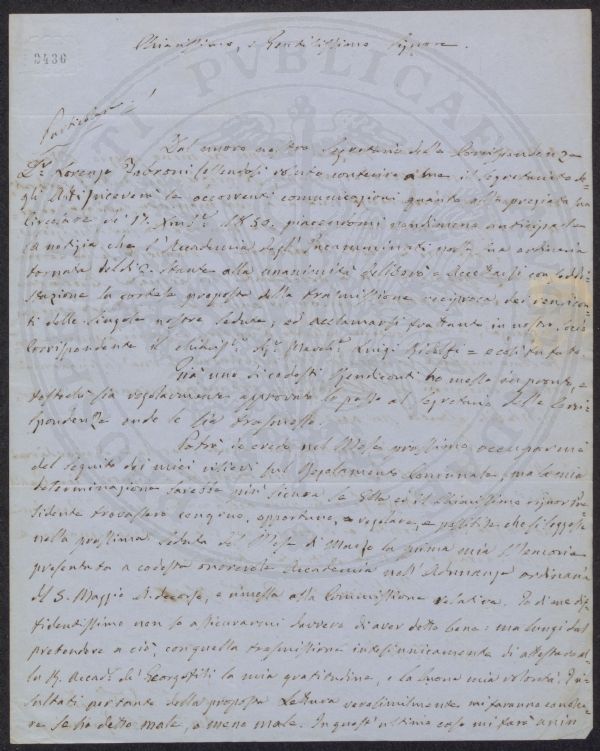 3436
Chiarissimo, e Gentilissimo Signore.
Particolare =
Dal nuovo nostro Segretario della Corrispondenza
Dr. Lorenzo Fabroni essendosi
il Segretariato de-
gli Atti, riceverà le occorrenti comunicazioni quanto alla pregiata sua
Circolare di
1850. piacendomi nondimeno anticiparle
la notizia che l'Accademia degli Incamminati nella sua ordinaria
tornata del dì 2. stante alla unanimità deliberò = Accettarsi con soddi-
sfazione la cortese proposta della trasmissione reciproca dei rendicon-
ti delle singole nostre sedute, ed acclamarsi frattanto in nostro socio
Corrispondente il
Sig. March. Luigi Ridolfi = e così fu fatto.
Già uno di codesti Rendiconti ho messo in punto, e
tostochè sia regolarmente approvato lo passo al Segretario della Corri-
spondenza onde le sia trasmesso.
Potrò, io credo nel Mese prossimo occuparmi
del seguito dei miei rilievi sul Regolamento Comunale, ma la mia
determinazione sarebbe più sicura se Ella ed il chiarissimo signor Pre-
sidente trovassero congruo, opportuno, e regolare, e possibile che si leggesse
nella prossima seduta del Mese di Marzo la prima mia Memoria
presentata a codesta onorevole Accademia nell'Adunanza ordinaria
del 5. Maggio
decorso, e rimessa alla Commissione relativa. Io di me dif-
fidentissimo non so assicurarmi davvero di aver detto bene: ma lungi dal
pretendere a ciò, con quella trasmissione intesi unicamente di attestare al-
la R. Accad. dei Georgofili la mia gratitudine, e la buona mia volontà. I ri-
sultati pertanto della proposta Lettura verosimilmente mi faranno conosce-
re se ho detto male, o meno male. In quest'ultimo caso mi farò anim-